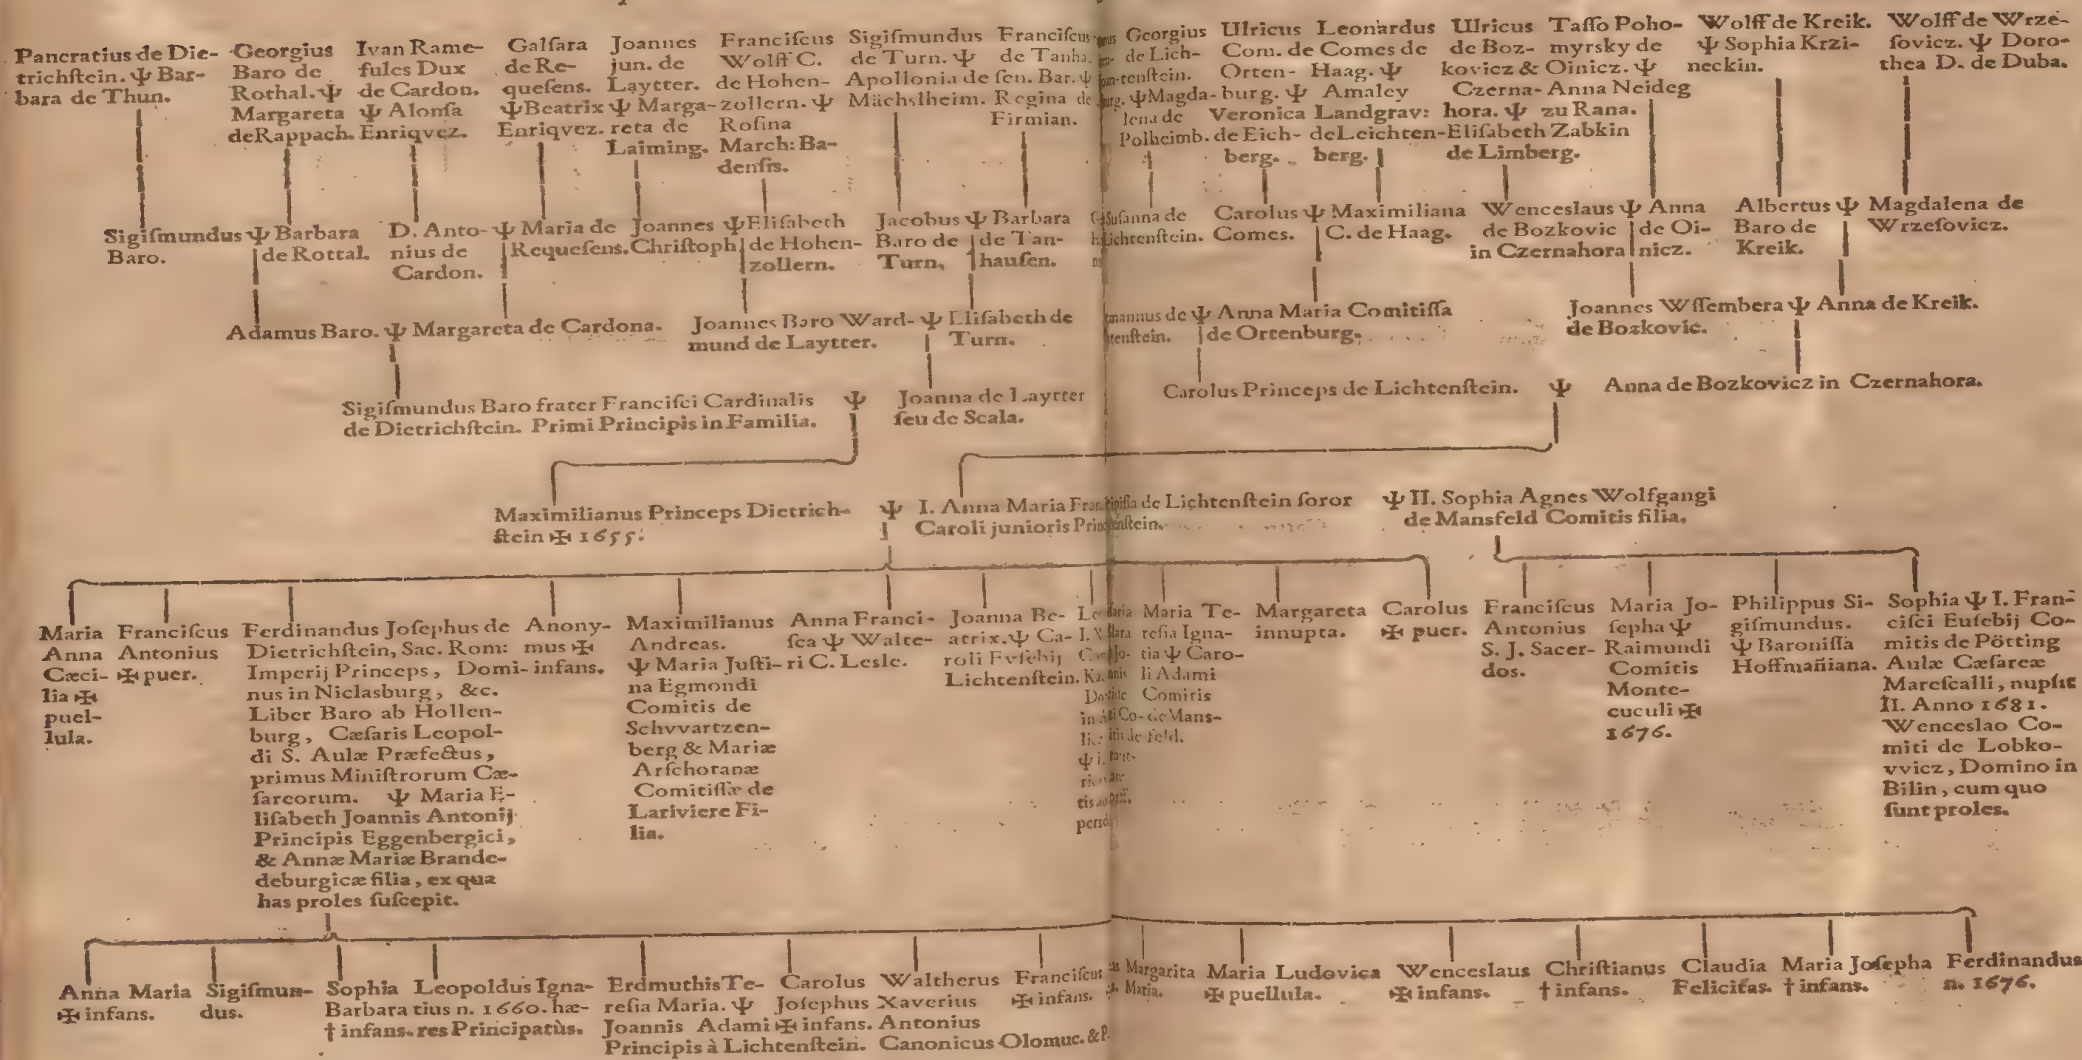 Pancratius de Die-
trichſtein. Ψ Bar-
bara de Thun.
Georgius
Baro de
Rothal. Ψ
Margareta
de Rappach.
Ivan Rame-
fules Dux
de Cardon.
Ψ Alonſa
Enriqvez.
Galſara
de Re-
queſens.
Ψ Beatrix
Enriqvez.
Joannes
jun. de
Laytter.
Ψ Marga-
reta de
Laiming.
Franciſcus
Wolff C.
de Hohen-
zollern. Ψ
Roſina
March: Ba-
denſis.
Sigiſmundus
de Turn. Ψ
Apollonia de
Mächslheim.
Franciſcus
de Tanha.
ſen. Bar. Ψ
Regina de
Firmian.
Georgius
de Lich-
tenſtein.
Ψ Magda-
lena de
Polheimb.
Ulricus
Com. de
Orten-
burg. Ψ
Veronica
de Eich-
berg.
Leonardus
Comes de
Haag. Ψ
Amaley
Landgrav:
de Leichten-
berg.
Ulricus
de Boz-
kovicz &
Czerna-
hora. Ψ
Eliſabeth
de Limberg.
Taſſo Poho-
myrsky de
Oinicz. Ψ
Anna Neideg
zu Rana.
Zabkin
Wolff de Kreik.
Ψ Sophia Krzi-
neckin.
Wolff de Wrze-
ſovicz. Ψ Doro-
thea D. de Duba.
Sigiſmundus Ψ Barbara
Baro. de Rottal.
D. Anto- Ψ Maria de
nius de Requeſens.
Cardon.
Joannes Ψ Eliſabeth
Chriſtoph de Hohen-
zollern.
Jacobus Ψ Barbara
Baro de de Tan-
Turn. hauſen.
Suſanna de
Lichtenſtein.
Carolus Ψ Maximiliana
Comes. C. de Haag.
Wenceslaus Ψ Anna
de Bozkovic de Oi-
in Czernahora nicz.
Albertus Ψ Magdalena de
Baro de Wrzeſovicz.
Kreik.
Adamus Baro. Ψ Margareta de Cardona.
Joannes Baro Ward- Ψ Eliſabeth de
mund de Laytter. Turn.
Ψ Anna Maria Comitiſſa
de Ortenburg.
Joannes Wſſembera Ψ Anna de Kreik.
de Bozkovic.
Sigiſmundus Baro frater Franciſci Cardinalis Ψ Joanna de Laytter
de Dietrichſtein. Primi Principis in Familia. ſeu de Scala.
Carolus Princeps de Lichtenſtein. Ψ Anna de Bozkovicz in Czernahora.
Maximilianus Princeps Dietrich-
ſtein ✠ 1655.
Ψ I. Anna Maria de Lichtenſtein ſoror
Caroli junioris
Ψ II. Sophia Agnes Wolfgangi
de Mansfeld Comitis filia.
Maria
Anna
Cæci-
lia ✠
puel-
lula.
Franciſcus
Antonius
✠ puer.
Ferdinandus Joſephus de
Dietrichſtein, Sac. Rom:
Imperij Princeps, Domi-
nus in Niclasburg, &c.
Liber Baro ab Hollen-
burg, Cæſaris Leopol-
di S. Aulæ Præfectus,
primus Miniſtrorum Cæ-
ſareorum. Ψ Maria E-
liſabeth Joannis Antonij
Principis Eggenbergici,
& Annæ Mariæ Brande-
deburgicæ filia, ex qua
has proles ſuſcepit.
Anony-
mus ✠
infans.
Maximilianus
Andreas.
Ψ Maria Juſti-
na Egmondi
Comitis de
Schvvartzen-
berg & Mariæ
Arſchotanæ
Comitiſſæ de
Lariviere Fi-
lia.
Anna Franci-
ſca Ψ Walte-
ri C. Lesle.
Joanna Be-
atrix. Ψ Ca-
roli Evſebij
Lichtenſtein.
Maria Te-
reſia Igna-
tia Ψ Caro-
li Adami
Comitis
de Mans-
feld.
Margareta
innupta.
Carolus
✠ puer.
Franciſcus
Antonius
S. J. Sacer-
dos.
Maria Jo-
ſepha Ψ
Raimundi
Comitis
Monte-
cuculi ✠
1676.
Philippus Si-
giſmundus.
Ψ Baroniſſa
Hoffmañiana.
Sophia Ψ I. Fran-
ciſci Euſebij Co-
mitis de Pötting
Aulæ Cæſareæ
Mareſcalli, nupſit
II. Anno 1681.
Wenceslao Co-
miti de Lobko-
vvicz, Domino in
Bilin, cum quo
ſunt proles.
Anna Maria
✠ infans.
Sigiſmun-
dus.
Sophia
Barbara
† infans.
Leopoldus Igna-
tius n. 1660. hæ-
res Principatùs.
Erdmuthis Te-
reſia Maria. Ψ
Joannis Adami
Principis à Lichtenſtein.
Carolus
Joſephus
✠ infans.
Waltherus
Xaverius
Antonius
Canonicus Olomuc. & P.
Franciſcus
✠ infans.
Margarita
Maria.
Maria Ludovica
✠ puellula.
Wenceslaus
✠ infans.
Chriſtianus
† infans.
Claudia
Felicitas.
Maria Joſepha
† infans.
Ferdinandus
n. 1676.